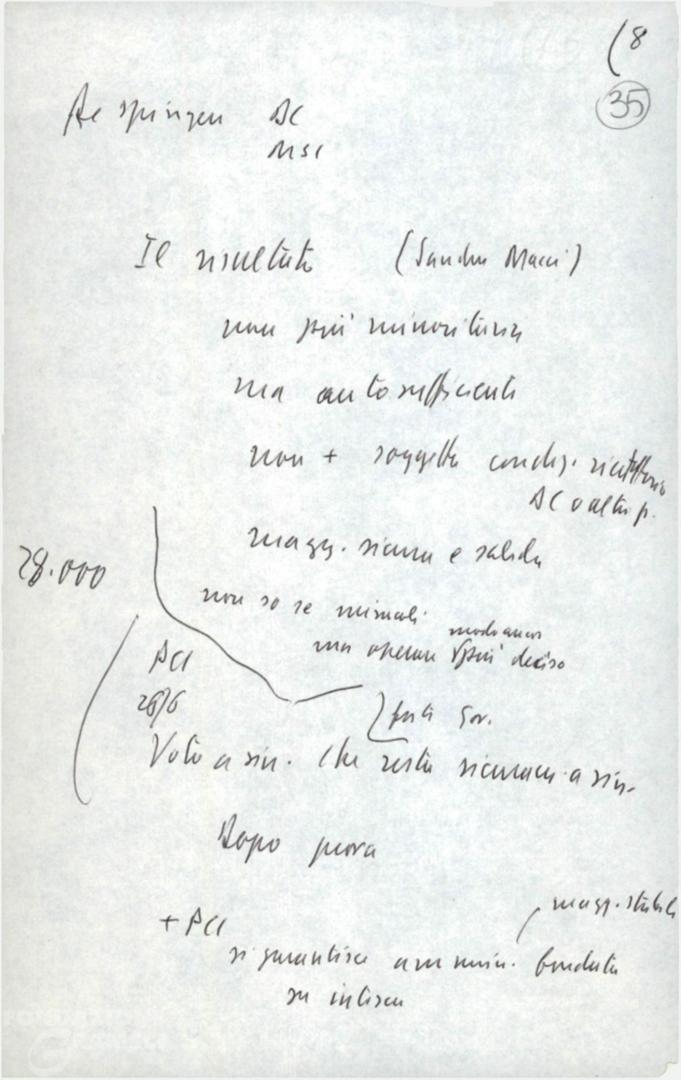 (8
35
Respingere DC
MSI
Il risultato (Sandro Macci)
non più minoritaria
ma autosufficiente
non + soggetta condiz. ricattatorio
DC o altri p.
magg. sicura e solida
28.000
non so se
ma operare più deciso
PCI
26%
forti Gov.
Voto a sin. che resta sicuram. a sin.
Dopo prova
+ PCI
magg. stabile
si garantisce ammin. fondata
su intesa